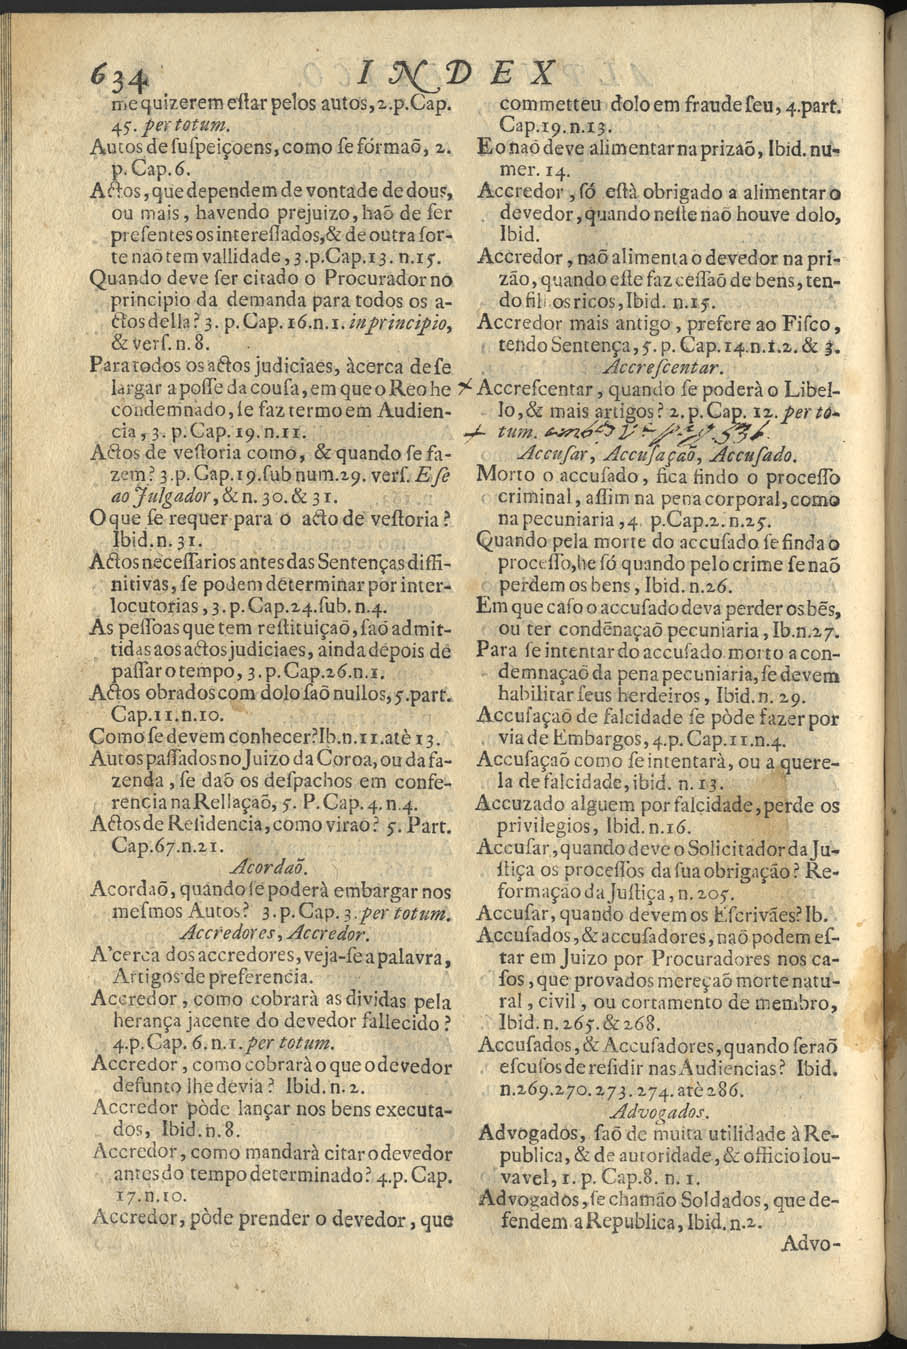 634 INDEX
me quizerem eſtar pelos autos, 2.p.Cap.
45. per totum.
Autos de ſuſpeiçoens, como ſe fórmaõ, 2.
p. Cap. 6.
Actos, que dependem de vontade de dous,
ou mais, havendo prejuizo, haõ de ſer
preſentes os intereſſados, & de outra ſor-
te naõ tem vallidade, 3.p.Cap.13. n.15.
Quando deve ſer citado o Procurador no
principio da demanda para todos os a-
ctos della? 3. p. Cap. 16.n.1. in principio,
& verſ. n. 8.
Para todos os actos judiciaes, àcerca de ſe
largar a poſſe da couſa, em que o Reo he
condemnado, ſe faz termo em Audien-
cia, 3. p. Cap. 19. n.11.
Actos de veſtoria como, & quando ſe fa-
zem? 3.p.Cap.19.ſub num.29. verſ. E ſe
ao Julgador, & n. 30. & 31.
O que ſe requer para o acto de veſtoria?
Ibid. n. 31.
Actos neceſſarios antes das Sentenças diffi-
nitivas, ſe podem determinar por inter-
locutorias, 3. p. Cap. 24. ſub. n. 4.
As peſſoas que tem reſtituiçaõ, ſaõ admit-
tidas aos actos judiciaes, ainda depois de
paſſar o tempo, 3. p. Cap.26.n.1.
Actos obrados com dolo ſaõ nullos, 5.part.
Cap.11.n.10.
Como ſe devem conhecer? Ib.n.11.atè 13.
Autos paſſados no Juizo da Coroa, ou da fa-
zenda, ſe daõ os deſpachos em confe-
rencia na Rellaçaõ, 5. P. Cap. 4. n. 4.
Actos de Reſidencia, como virao? 5. Part.
Cap.67.n.21.
Acordaõ.
Acordaõ, quando ſe poderà embargar nos
meſmos Autos? 3. p. Cap. 3. per totum.
Accredores, Accredor.
A'cerca dos accredores, veja-ſe a palavra,
Artigos de preferencia.
Accredor, como cobrarà as dividas pela
herança jacente do devedor fallecido?
4.p. Cap. 6. n. 1. per totum.
Accredor, como cobrarà o que o devedor
defunto lhe devia? Ibid. n. 2.
Accredor pòde lançar nos bens executa-
dos, Ibid. n. 8.
Accredor, como mandarà citar o devedor
antes do tempo determinado? 4.p. Cap.
17.n.10.
Accredor, pòde prender o devedor, que
commetteu dolo em fraude ſeu, 4.part.
Cap.19.n.13.
E o naõ deve alimentar na prizaõ, Ibid. nu-
mer. 14.
Accredor, ſó eſtà obrigado a alimentar o
devedor, quando neſte naõ houve dolo,
Ibid.
Accredor, naõ alimenta o devedor na pri-
zão, quando eſte faz ceſſaõ de bens, ten-
do filhos ricos, Ibid. n.15.
Accredor mais antigo, prefere ao Fiſco,
tendo Sentença, 5. p. Cap. 14.n.1.2. & 3.
Accreſcentar.
Accreſcentar, quando ſe poderà o Libel-
lo, & mais artigos? 2. p. Cap. 12. per to-
tum.
Accuſar, Accuſação, Accuſado.
Morto o accuſado, fica findo o proceſſo
criminal, aſſim na pena corporal, como
na pecuniaria, 4. p.Cap.2. n.25.
Quando pela morte do accuſado ſe finda o
proceſſo, he ſó quando pelo crime ſe naõ
perdem os bens, Ibid. n.26.
Em que caſo o accuſado deva perder os bẽs,
ou ter condẽnaçaõ pecuniaria, Ib.n.27.
Para ſe intentar do accuſado morto a con-
demnaçaõ da pena pecuniaria, ſe devem
habilitar ſeus herdeiros, Ibid. n. 29.
Accuſaçaõ de falcidade ſe pòde fazer por
via de Embargos, 4.p. Cap.11.n.4.
Accuſaçaõ como ſe intentarà, ou a quere-
la de falcidade, ibid. n. 13.
Accuzado alguem por falcidade, perde os
privilegios, Ibid. n.16.
Accuſar, quando deve o Solicitador da Ju-
ſtiça os proceſſos da ſua obrigação? Re-
formação da Juſtiça, n. 205.
Accuſar, quando devem os Eſcrivães? Ib.
Accuſados, & accuſadores, naõ podem eſ-
tar em Juizo por Procuradores nos ca-
ſos, que provados mereçaõ morte natu-
ral, civil, ou cortamento de membro,
Ibid. n. 265. & 268.
Accuſados, & Accuſadores, quando ſeraõ
eſcuſos de reſidir nas Audiencias? Ibid.
n.269.270.273.274.atè 286.
Advogados.
Advogados, ſaõ de muita utilidade à Re-
publica, & de autoridade, & officio lou-
vavel, 1. p. Cap.8. n. 1.
Advogados, ſe chamão Soldados, que de-
fendem a Republica, Ibid. n.2.
Advo-